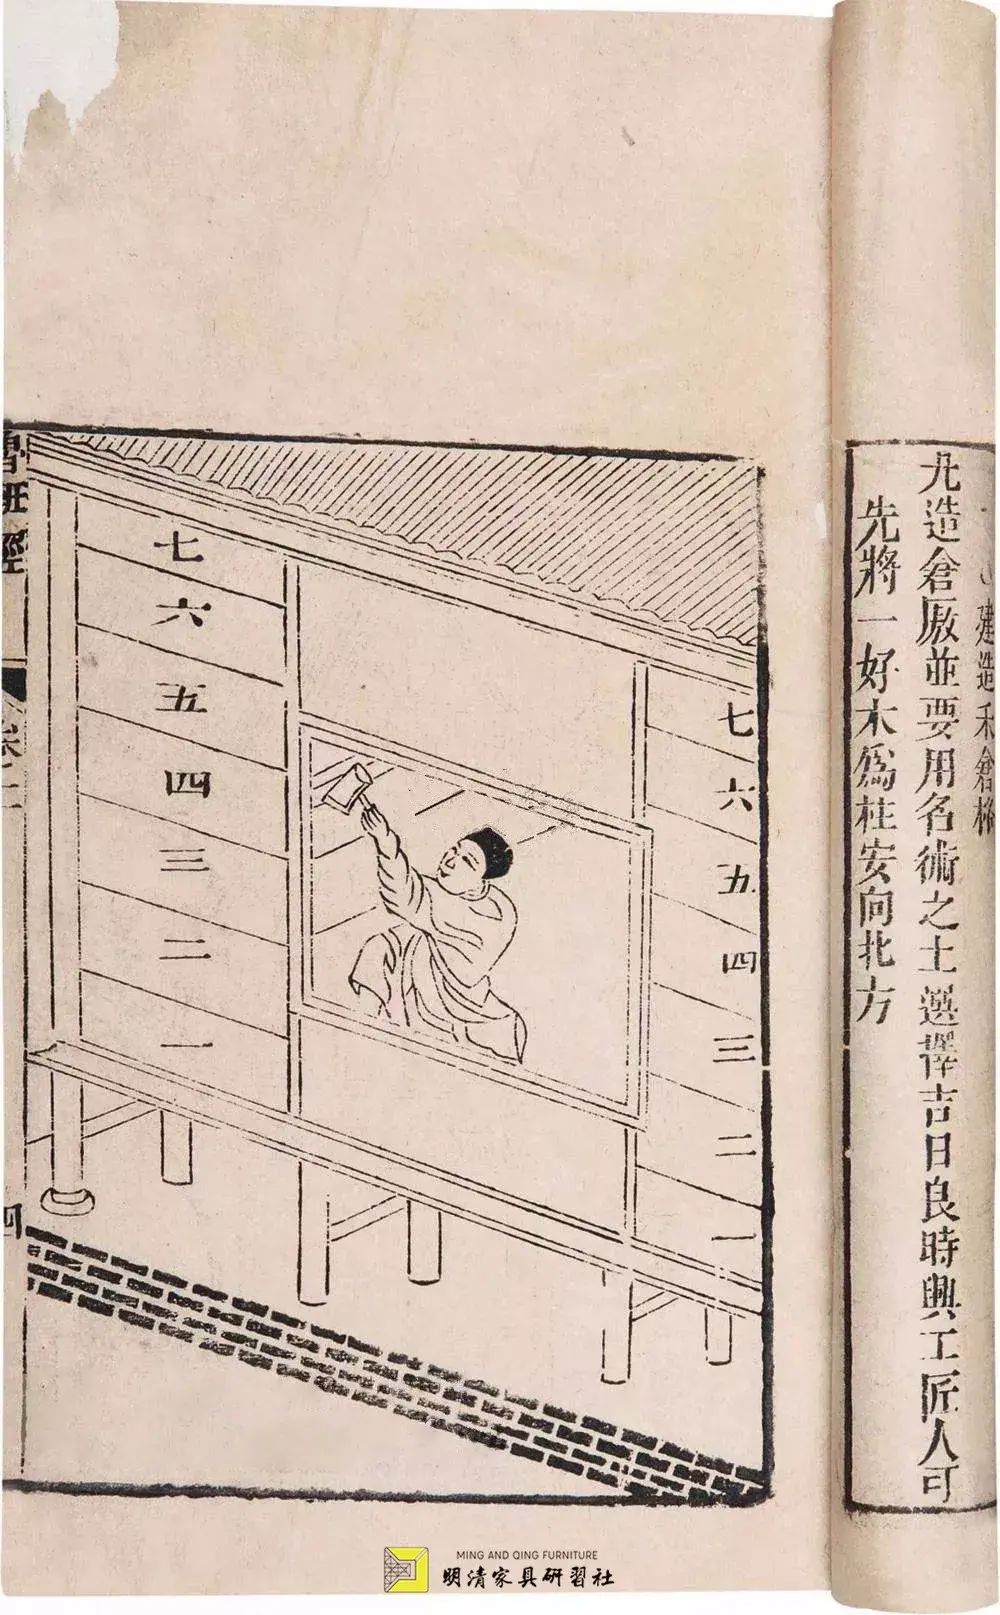 建造禾倉
凡造倉廒並要用名術之士選擇吉日良時興工匠人可
先將一好木爲柱安向北方
七
六
五
四
三
二
一
七
六
五
四
三
二
一
魯班經
卷二
四
MING AND QING FURNITURE
明清家具研習社